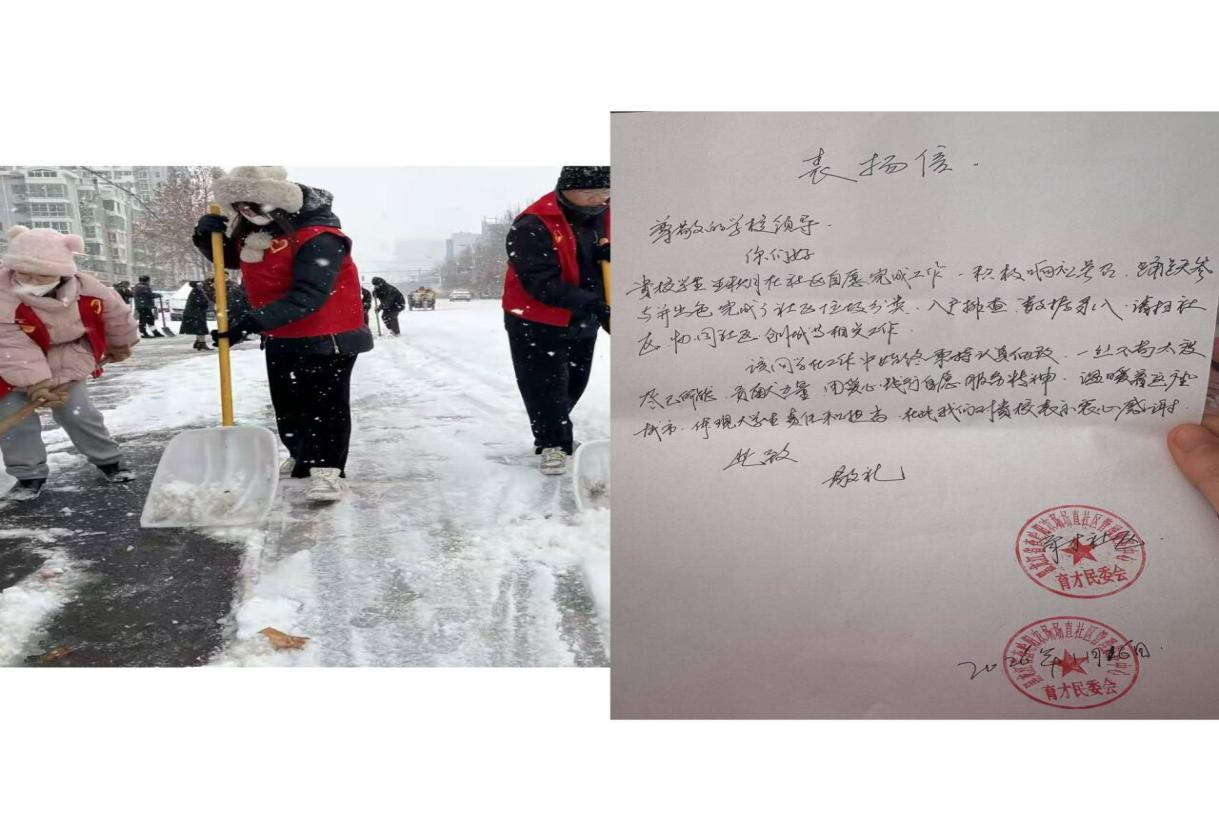 表扬信.
尊敬的学校领导.
你们好
贵校学生 在社区自愿完成工作.积极响应号召.踊跃参
与并出色完成了社区垃圾分类、入户排查、数据录入、清扫社
区、协同社区创城等相关工作.
该同学在工作中始终秉持认真细致、一丝不苟太度
尽己所能、贡献力量、用爱心践行自愿服务精神、温暖着这座
城市.体现大学生责任和担当.在此我们对贵校表示衷心感谢.
此致
敬礼
社区
育才民委会
年1月 日.
育才民委会